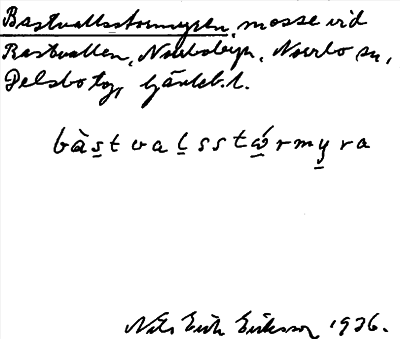 Bastvallsstormyren, mosse vid
Bastvallen, Norrbobyn, Norrbo sn,
Delsbo tg, Gävleb. l.
bàs̲tval̲sstǿ̲rmy̲ra
Nils Erik Eriksson 1936.